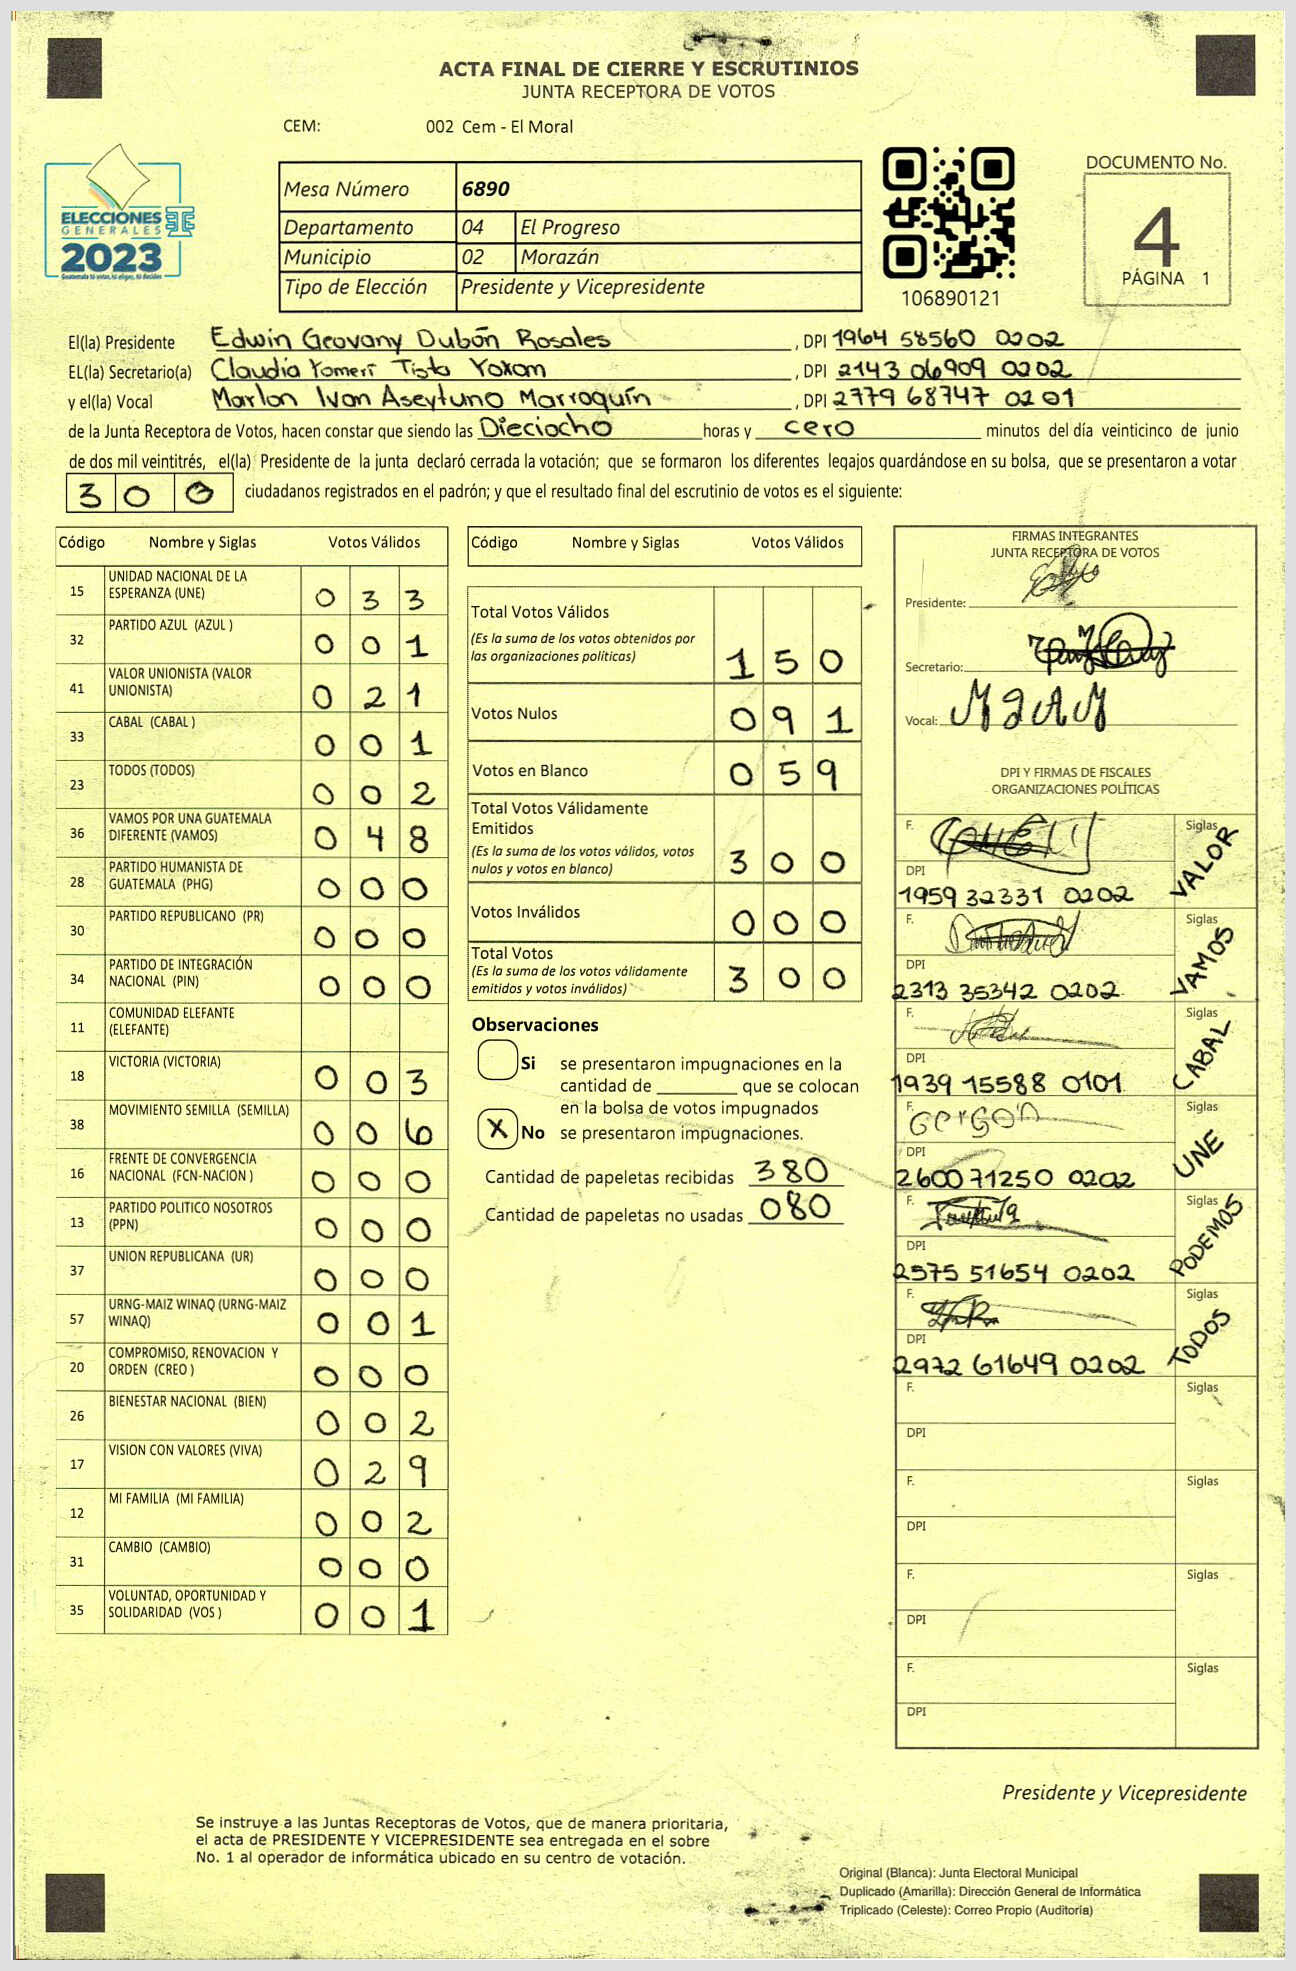 ACTA FINAL DE CIERRE Y ESCRUTINIOS
JUNTA RECEPTORA DE VOTOS
CEM: 002 Cem - El Moral
ELECCIONES
GENERALES
2023
Guatemala tú votas, tú eliges, tú decides
Mesa Número 6890
Departamento 04 El Progreso
Municipio 02 Morazán
Tipo de Elección Presidente y Vicepresidente
106890121
DOCUMENTO No.
4
PÁGINA 1
El(la) Presidente Edwin Geovany Dubón Rosales, DPI 1964 58560 0202
EL(la) Secretario(a) Claudia Yomeri Tista Yoxom, DPI 2143 06909 0202
y el(la) Vocal Marlon Ivan Aseytuno Marroquín, DPI 2779 68747 0201
de la Junta Receptora de Votos, hacen constar que siendo las Dieciocho horas y cero minutos del día veinticinco de junio
de dos mil veintitrés, el(la) Presidente de la junta declaró cerrada la votación; que se formaron los diferentes legajos guardándose en su bolsa, que se presentaron a votar
300 ciudadanos registrados en el padrón; y que el resultado final del escrutinio de votos es el siguiente:
Código Nombre y Siglas Votos Válidos
15 UNIDAD NACIONAL DE LA
ESPERANZA (UNE) 0 3 3
32 PARTIDO AZUL (AZUL ) 0 0 1
41 VALOR UNIONISTA (VALOR
UNIONISTA) 0 2 1
33 CABAL (CABAL ) 0 0 1
23 TODOS (TODOS) 0 0 2
36 VAMOS POR UNA GUATEMALA
DIFERENTE (VAMOS) 0 4 8
28 PARTIDO HUMANISTA DE
GUATEMALA (PHG) 0 0 0
30 PARTIDO REPUBLICANO (PR) 0 0 0
34 PARTIDO DE INTEGRACIÓN
NACIONAL (PIN) 0 0 0
11 COMUNIDAD ELEFANTE
(ELEFANTE)
18 VICTORIA (VICTORIA) 0 0 3
38 MOVIMIENTO SEMILLA (SEMILLA) 0 0 6
16 FRENTE DE CONVERGENCIA
NACIONAL (FCN-NACION ) 0 0 0
13 PARTIDO POLITICO NOSOTROS
(PPN) 0 0 0
37 UNION REPUBLICANA (UR) 0 0 0
57 URNG-MAIZ WINAQ (URNG-MAIZ
WINAQ) 0 0 1
20 COMPROMISO, RENOVACION Y
ORDEN (CREO ) 0 0 0
26 BIENESTAR NACIONAL (BIEN) 0 0 2
17 VISION CON VALORES (VIVA) 0 2 9
12 MI FAMILIA (MI FAMILIA) 0 0 2
31 CAMBIO (CAMBIO) 0 0 0
35 VOLUNTAD, OPORTUNIDAD Y
SOLIDARIDAD (VOS ) 0 0 1
Código Nombre y Siglas Votos Válidos
Total Votos Válidos
(Es la suma de los votos obtenidos por
las organizaciones políticas) 1 5 0
Votos Nulos 0 9 1
Votos en Blanco 0 5 9
Total Votos Válidamente
Emitidos
(Es la suma de los votos válidos, votos
nulos y votos en blanco) 3 0 0
Votos Inválidos 0 0 0
Total Votos
(Es la suma de los votos válidamente
emitidos y votos inválidos) 3 0 0
Observaciones
Si se presentaron impugnaciones en la
cantidad de ________ que se colocan
en la bolsa de votos impugnados
X No se presentaron impugnaciones.
Cantidad de papeletas recibidas 380
Cantidad de papeletas no usadas 080
FIRMAS INTEGRANTES
JUNTA RECEPTORA DE VOTOS
Presidente:
Secretario:
Vocal:
DPI Y FIRMAS DE FISCALES
ORGANIZACIONES POLÍTICAS
F. Siglas VALOR
DPI
1959 32331 0202
F. Siglas VAMOS
DPI
2313 35342 0202
F. Siglas CABAL
DPI
1939 15588 0101
F. Gerson Siglas UNE
DPI
2600 71250 0202
F. Siglas PODEMOS
DPI
2575 51654 0202
F. Siglas TODOS
DPI
2972 61649 0202
F. Siglas
DPI
F. Siglas
DPI
F. Siglas
DPI
F. Siglas
DPI
Presidente y Vicepresidente
Se instruye a las Juntas Receptoras de Votos, que de manera prioritaria,
el acta de PRESIDENTE Y VICEPRESIDENTE sea entregada en el sobre
No. 1 al operador de informática ubicado en su centro de votación.
Original (Blanca): Junta Electoral Municipal
Duplicado (Amarilla): Dirección General de Informática
Triplicado (Celeste): Correo Propio (Auditoría)